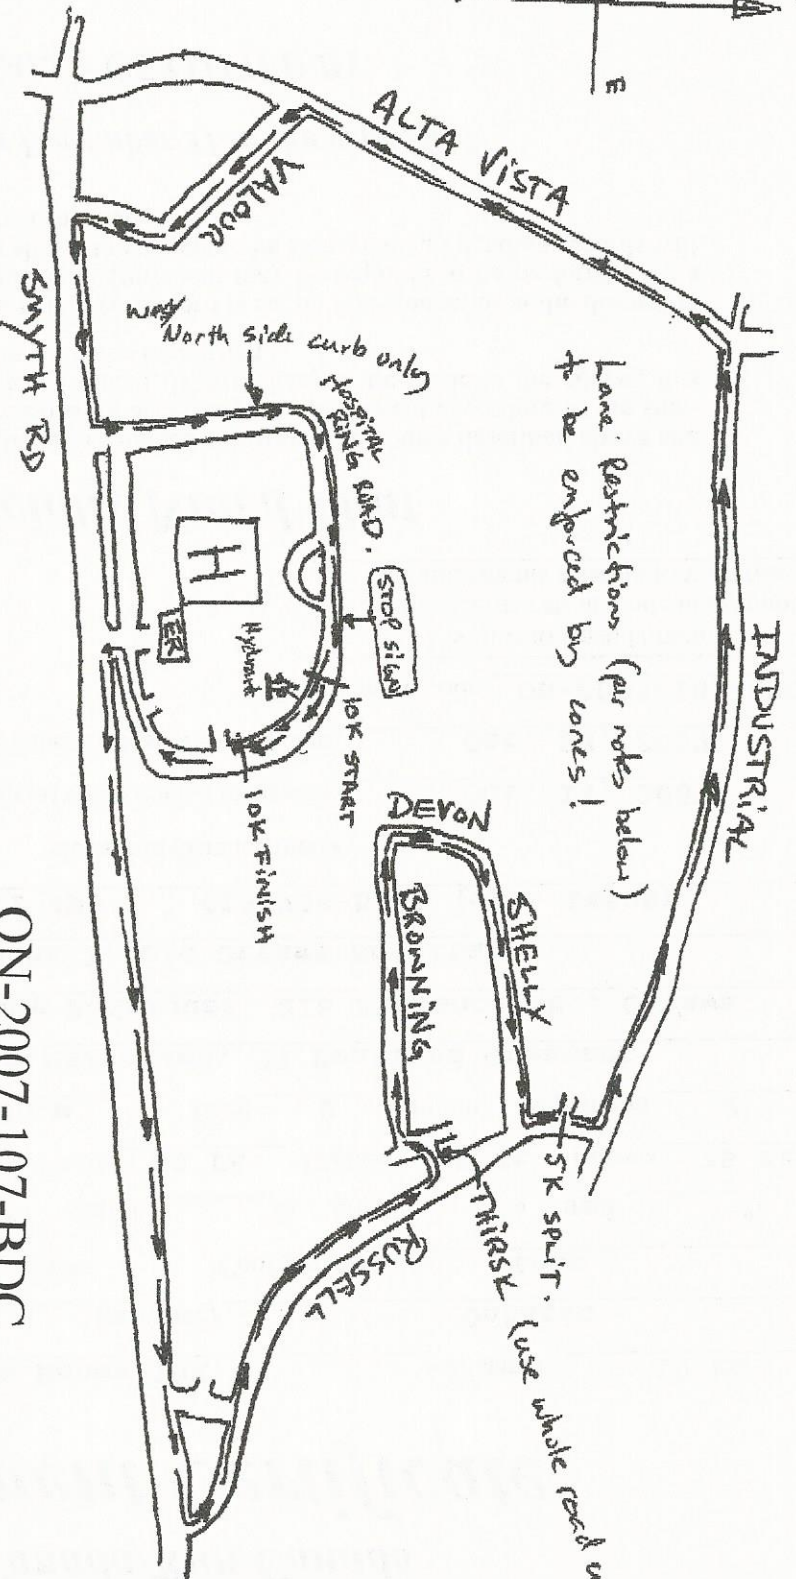 E
ALTA VISTA
VALOUR
SMYTH RD
North side curb only
HOSPITAL
RING ROAD.
STOP SIGN
H
ER
Hydrant
10K START
10K FINISH
Lane Restrictions (per notes below)
to be enforced by cones!
INDUSTRIAL
DEVON
BROWNING
SHELLY
5K SPLIT.
THIRSK (use whole road
RUSSELL
ON-2007-107-BDC